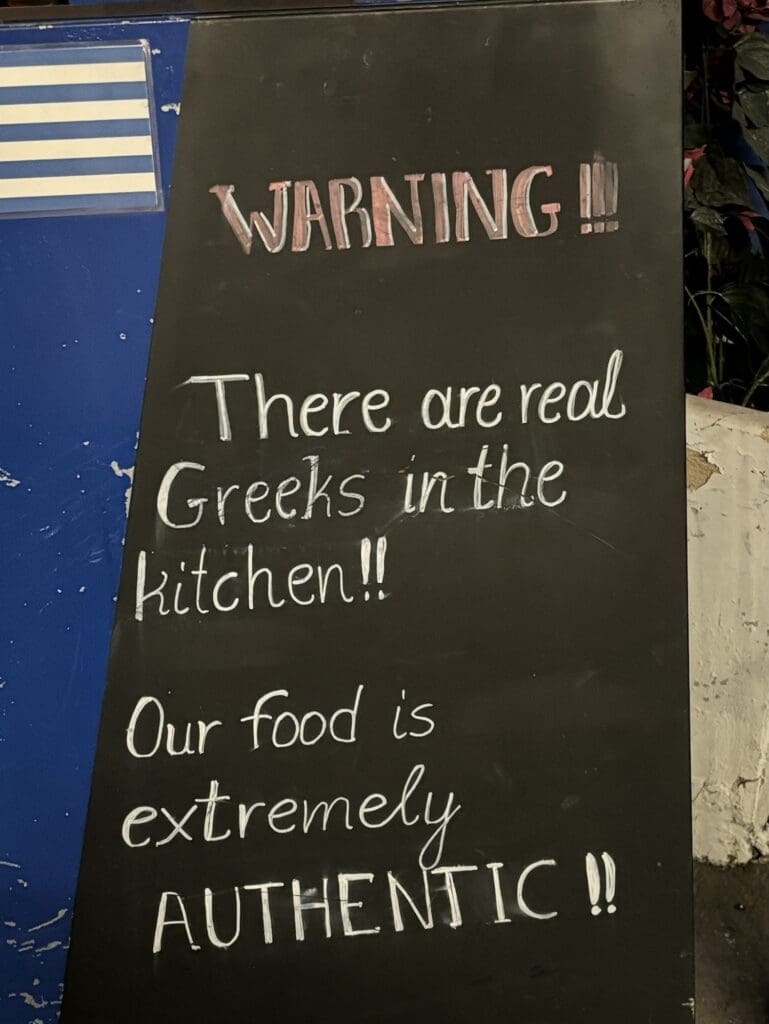 WARNING!!!
There are real
Greeks in the
kitchen!!
Our food is
extremely
AUTHENTIC !!